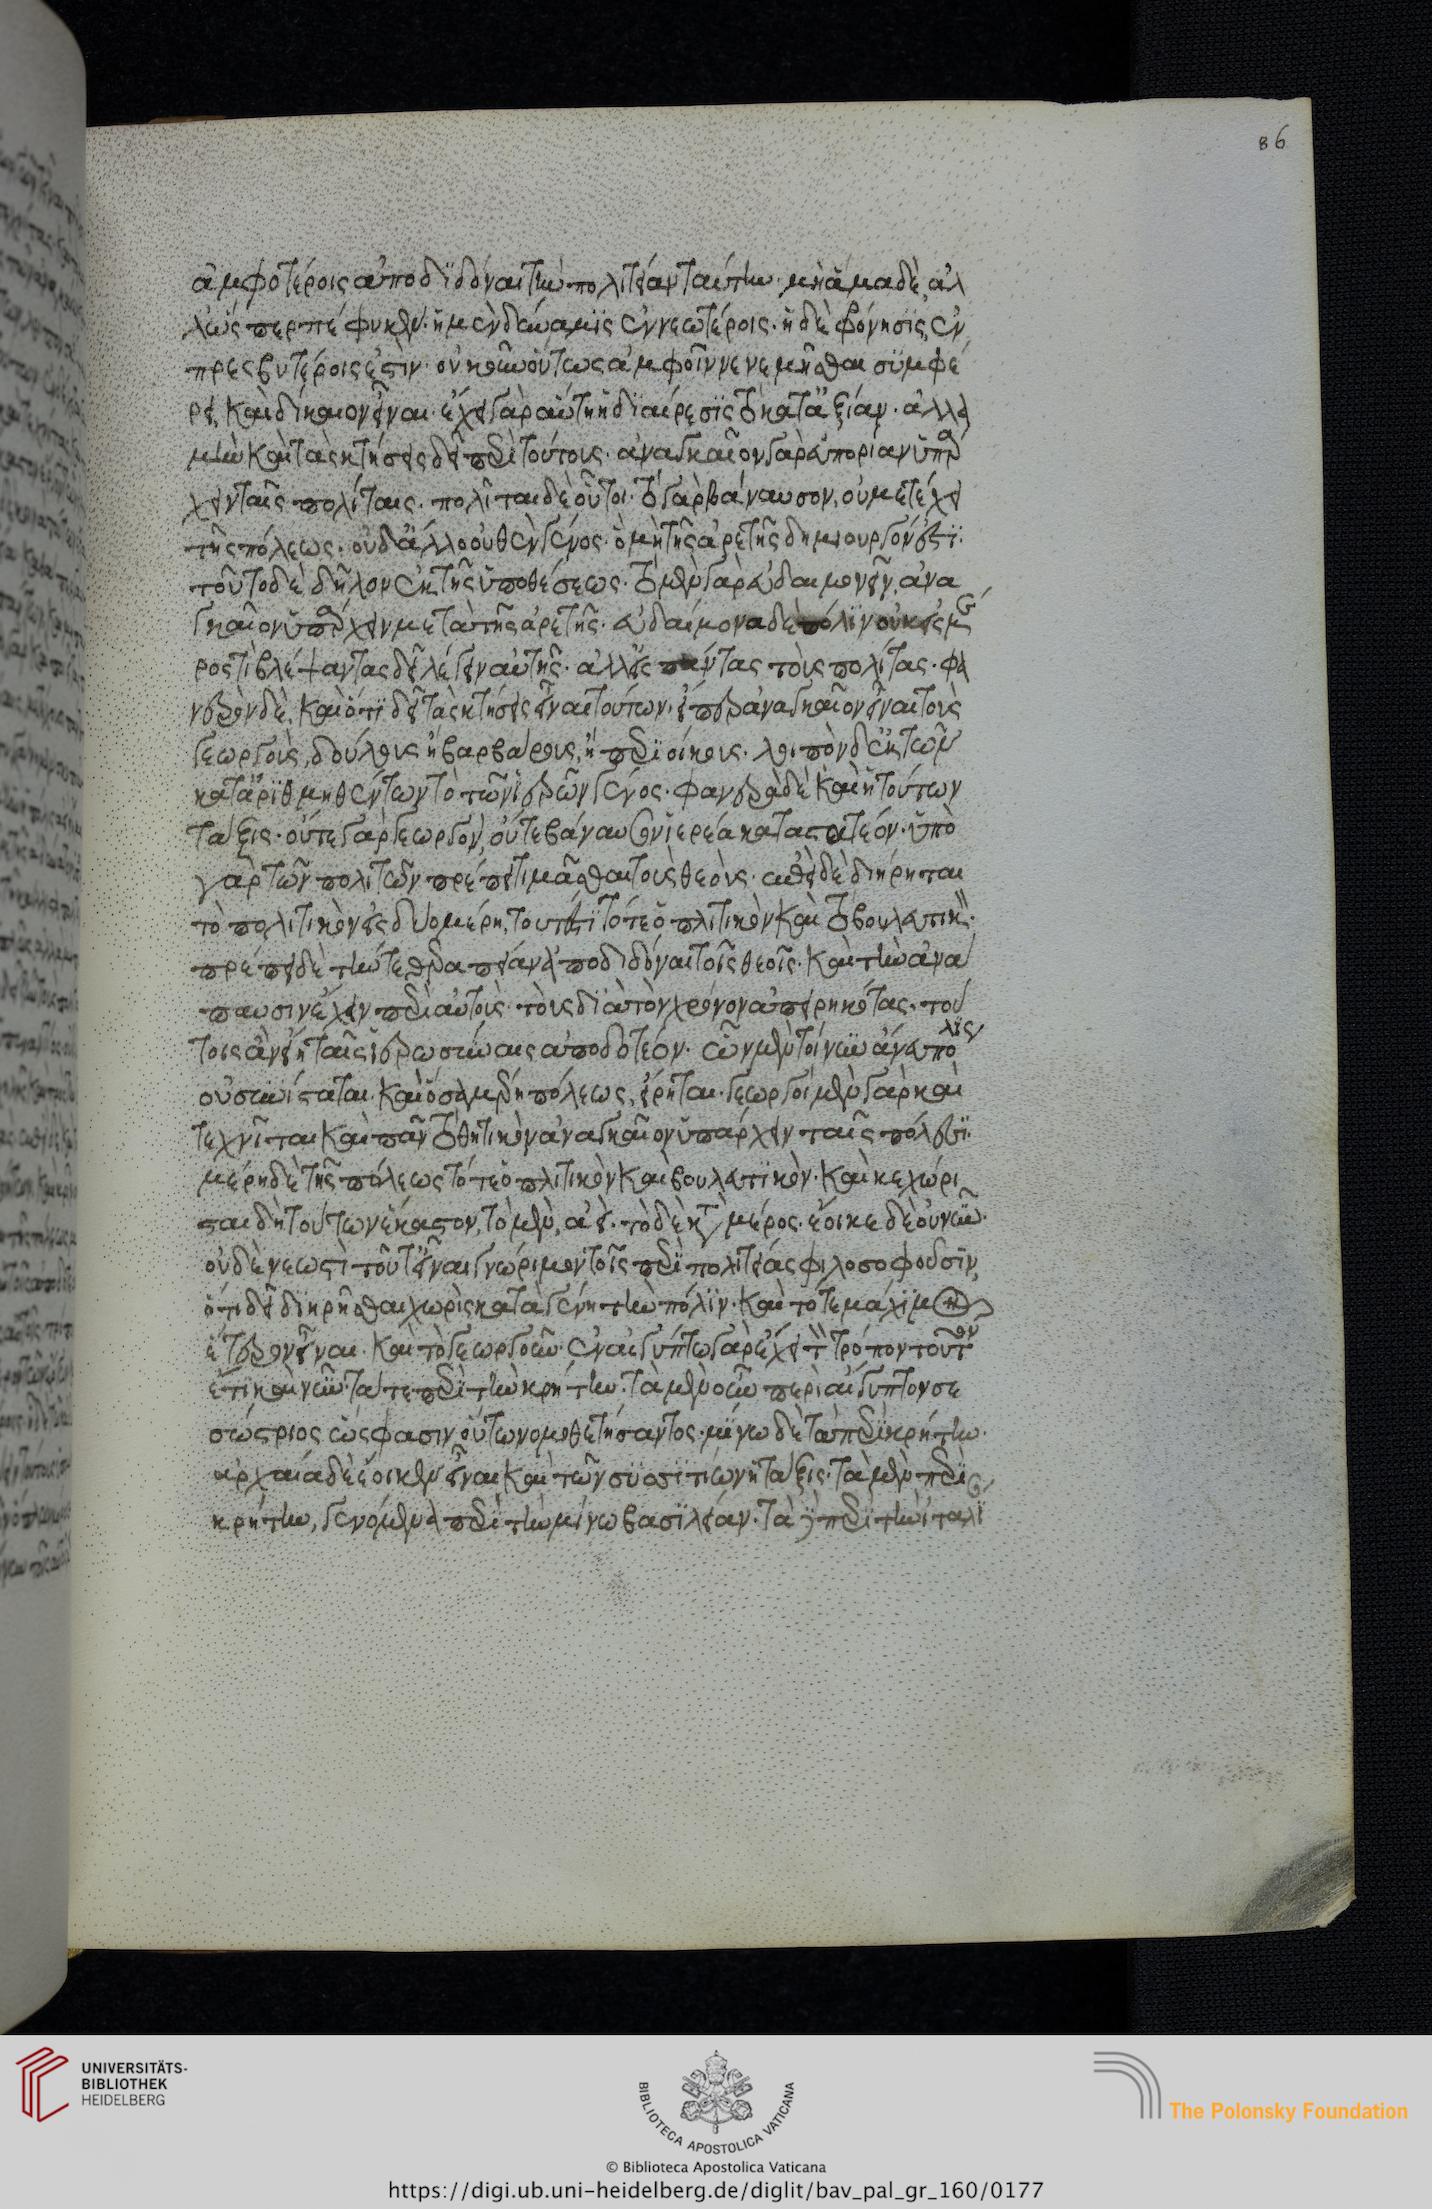 86
ἀμφοτέροις ἀποδιδόναι τὴν πολιτείαν ταύτην. μὴ ἅμα δὲ, ἀλ
λ' ὥσπερ πέφυκεν. ἡ μὲν δύναμις ἐν νεωτέροις. ἡ δὲ φρόνησις, ἐν
πρεσβυτέροις ἐστίν. οὐκοῦν οὕτως ἀμφοῖν νενεμῆσθαι συμφέ
ρει, καὶ δίκαιον εἶναι. ἔχει γὰρ αὕτη ἡ διαίρεσις τὸ κατ' ἀξίαν. ἀλλὰ
μὴν καὶ τὰς κτήσεις δεῖ περὶ τούτους. ἀναγκαῖον γὰρ εὐπορίαν ὑπάρ
χειν ταῖς πολίταις. πολῖται δὲ οὗτοι. τὸ γὰρ βάναυσον, οὐ μετέχει
τῆς πόλεως. οὐδ' ἄλλο οὐθὲν γένος. ὃ μὴ τῆς ἀρετῆς δημιουργόν ἐστι.
τοῦτο δὲ δῆλον ἐκ τῆς ὑποθέσεως. τὸ μὲν γὰρ εὐδαιμονεῖν, ἀνα
γκαῖον ὑπάρχειν μετὰ τῆς ἀρετῆς. εὐδαίμονα δὲ πόλιν οὐκ εἰς μέ
ρος τι βλέψαντας δεῖ λέγειν αὐτῆς. ἀλλ' εἰς πάντας τοὺς πολίτας. φα
νερὸν δὲ, καὶ ὅτι δεῖ τὰς κτήσεις εἶναι τούτων. εἴπερ ἀναγκαῖον εἶναι τοὺς
γεωργοὺς, δούλους ἢ βαρβάρους, ἢ περιοίκους. λοιπὸν δ' ἐκ τῶν
καταριθμηθέντων τὸ τῶν ἱερῶν γένος. φανερὰ δὲ καὶ ἡ τούτων
τάξις. οὔτε γὰρ γεωργὸν, οὔτε βάναυσον ἱερέα καταστατέον. ὑπὸ
γὰρ τῶν πολιτῶν πρέπει τιμᾶσθαι τοὺς θεούς. ἐπεὶ δὲ διῄρηται
τὸ πολιτικὸν εἰς δύο μέρη, τουτέστι τό τε ὁπλιτικὸν καὶ τὸ βουλευτικόν.
πρέπει δὲ τήν τε θεραπείαν ἀποδιδόναι τοῖς θεοῖς. καὶ τὴν ἀνά
παυσιν ἔχειν περὶ αὐτοὺς τοὺς διὰ τὸν χρόνον ἀπειρηκότας. τού
τοις ἂν εἴη τὰς ἱερωσύνας ἀποδοτέον. ὧν μὲν τοίνυν ἄνευ πόλις
οὐ συνίσταται. καὶ ὅσα μέρη πόλεως, εἴρηται. γεωργοὶ μὲν γὰρ καὶ
τεχνῖται καὶ πᾶν τὸ θητικὸν ἀναγκαῖον ὑπάρχειν ταῖς πόλεσι.
μέρη δὲ τῆς πόλεως τό τε ὁπλιτικὸν καὶ βουλευτικόν. καὶ κεχώρι
σται δὴ τούτων ἕκαστον, τὸ μὲν, ἀεί. τὸ δὲ κατὰ μέρος. ἔοικε δὲ οὐ νῦν
οὐδὲ νεωστὶ τοῦτ' εἶναι γνώριμον τοῖς περὶ πολιτείας φιλοσοφοῦσιν,
ὅτι δεῖ διῃρῆσθαι χωρὶς κατὰ γένη τὴν πόλιν. καὶ τό τε μάχιμον
ἕτερον εἶναι. καὶ τὸ γεωργοῦν. ἐν αἰγύπτῳ γὰρ ἔχει τὸν τρόπον τοῦτον
ἔτι καὶ νῦν. τά τε περὶ τὴν κρήτην. τὰ μὲν οὖν περὶ αἴγυπτον σε
σώστριος ὥς φασιν οὕτω νομοθετήσαντος. μίνω δὲ τὰ περὶ κρήτην.
ἀρχαία δὲ ἔοικεν εἶναι καὶ τῶν συσσιτίων ἡ τάξις. τὰ μὲν περὶ
κρήτην, γενόμενα περὶ τὴν μίνω βασιλείαν. τὰ δὲ περὶ τὴν ἰταλί
UNIVERSITÄTS-
BIBLIOTHEK
HEIDELBERG
BIBLIOTECA APOSTOLICA VATICANA
The Polonsky Foundation
© Biblioteca Apostolica Vaticana
https://digi.ub.uni-heidelberg.de/diglit/bav_pal_gr_160/0177